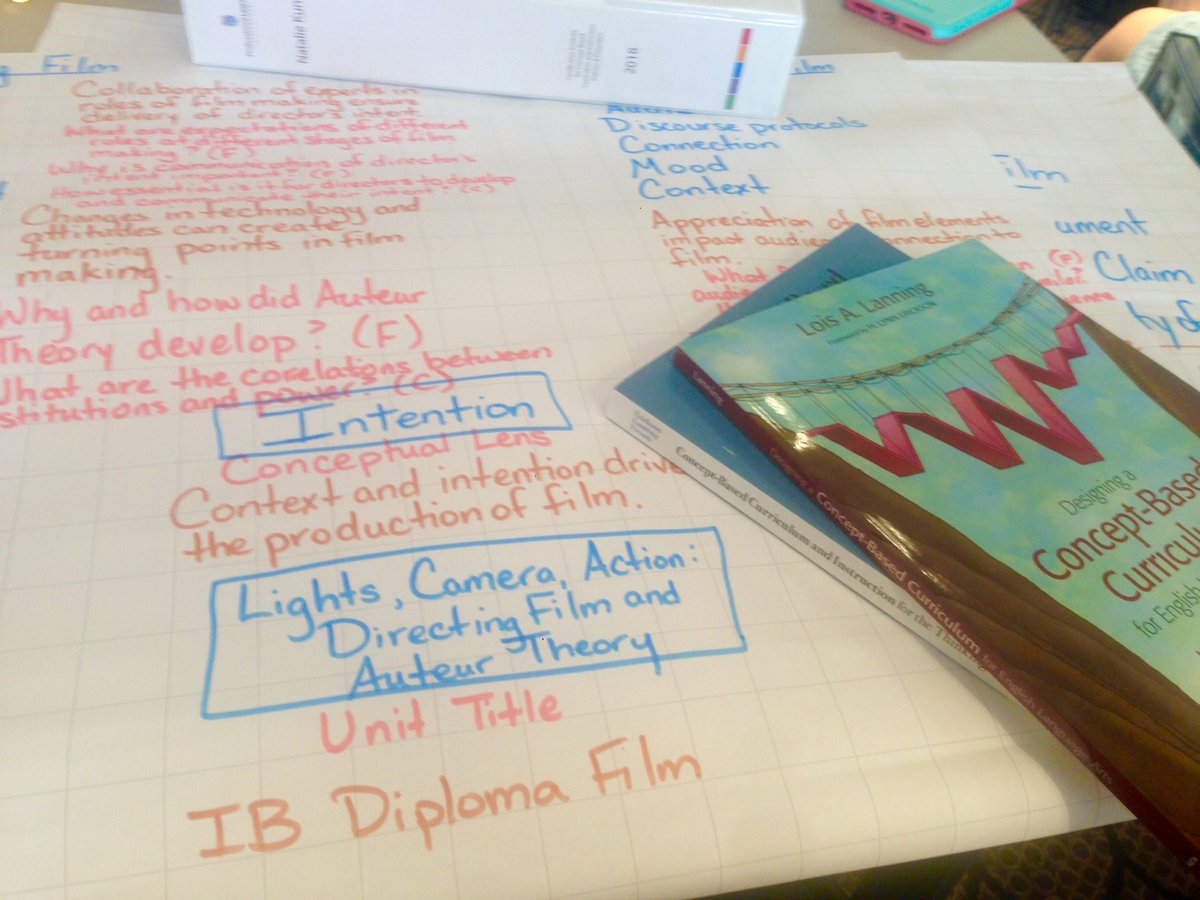 Natalie Kun
2018
g Film
Collaboration of experts in
roles of film making ensure
delivery of director's intent
What are expectations of different
roles at different stages of film
making? (F)
Why is communication of director's
intent important? (F)
How essential is it for directors to develop
and communicate their intent? (C)
Changes in technology and
attitudes can create
turning points in film
making.
Why and how did Auteur
Theory develop? (F)
What are the corelations between
stitutions and power? (C)
Intention
Conceptual Lens
Context and intention drive
the production of film.
Lights, Camera, Action:
Directing Film and
Auteur Theory
Unit Title
IB Diploma Film
ilm
Discourse protocols
Connection
Mood
Context
Appreciation of film elements
impact audien connection to
film.
What
audie
(F)
ilm
ument
Claim
ty of
Lois A. Lanning
Foreword by H. LYNN ERICKSON
Designing a
Concept-Based
Curricul
for English
Lanning
Designing a Concept-Based Curriculum for English Language Arts
Concept-Based Curriculum and Instruction for the Thinking